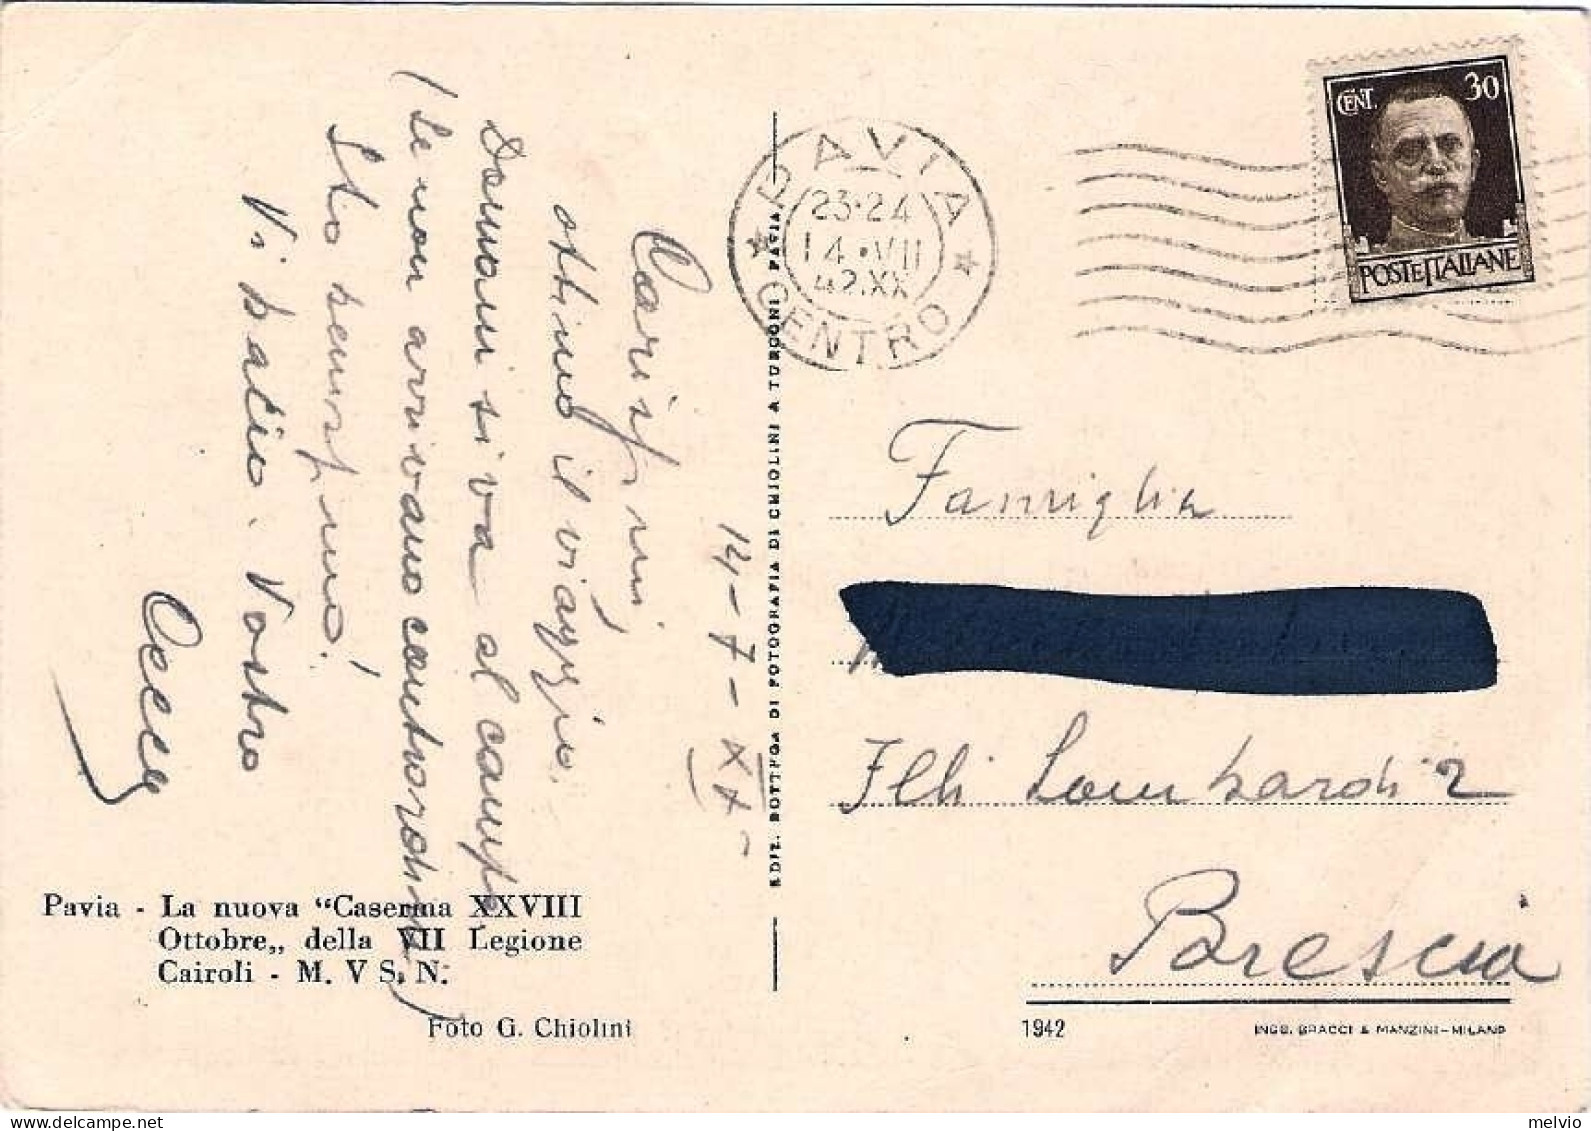 14-7-XX-
Carissimi,
ottimo il viaggio.
Domani si va al campo
(se non arrivano contrordini)
Sto benissimo!
Vi bacio. Vostro
Pavia - La nuova “Caserma XXVIII
Ottobre„ della VII Legione
Cairoli - M. V S. N.
Foto G. Chiolini
EDIZ. BOTTEGA DI FOTOGRAFIA DI CHIOLINI A TURCONI PAVIA
PAVIA
23·24
14·VII
42.XX
CENTRO
CENT. 30
POSTE ITALIANE
Famiglia
Flli Lombardi 2
Brescia
1942
INGG. BRACCI & MANZINI-MILANO
melvio